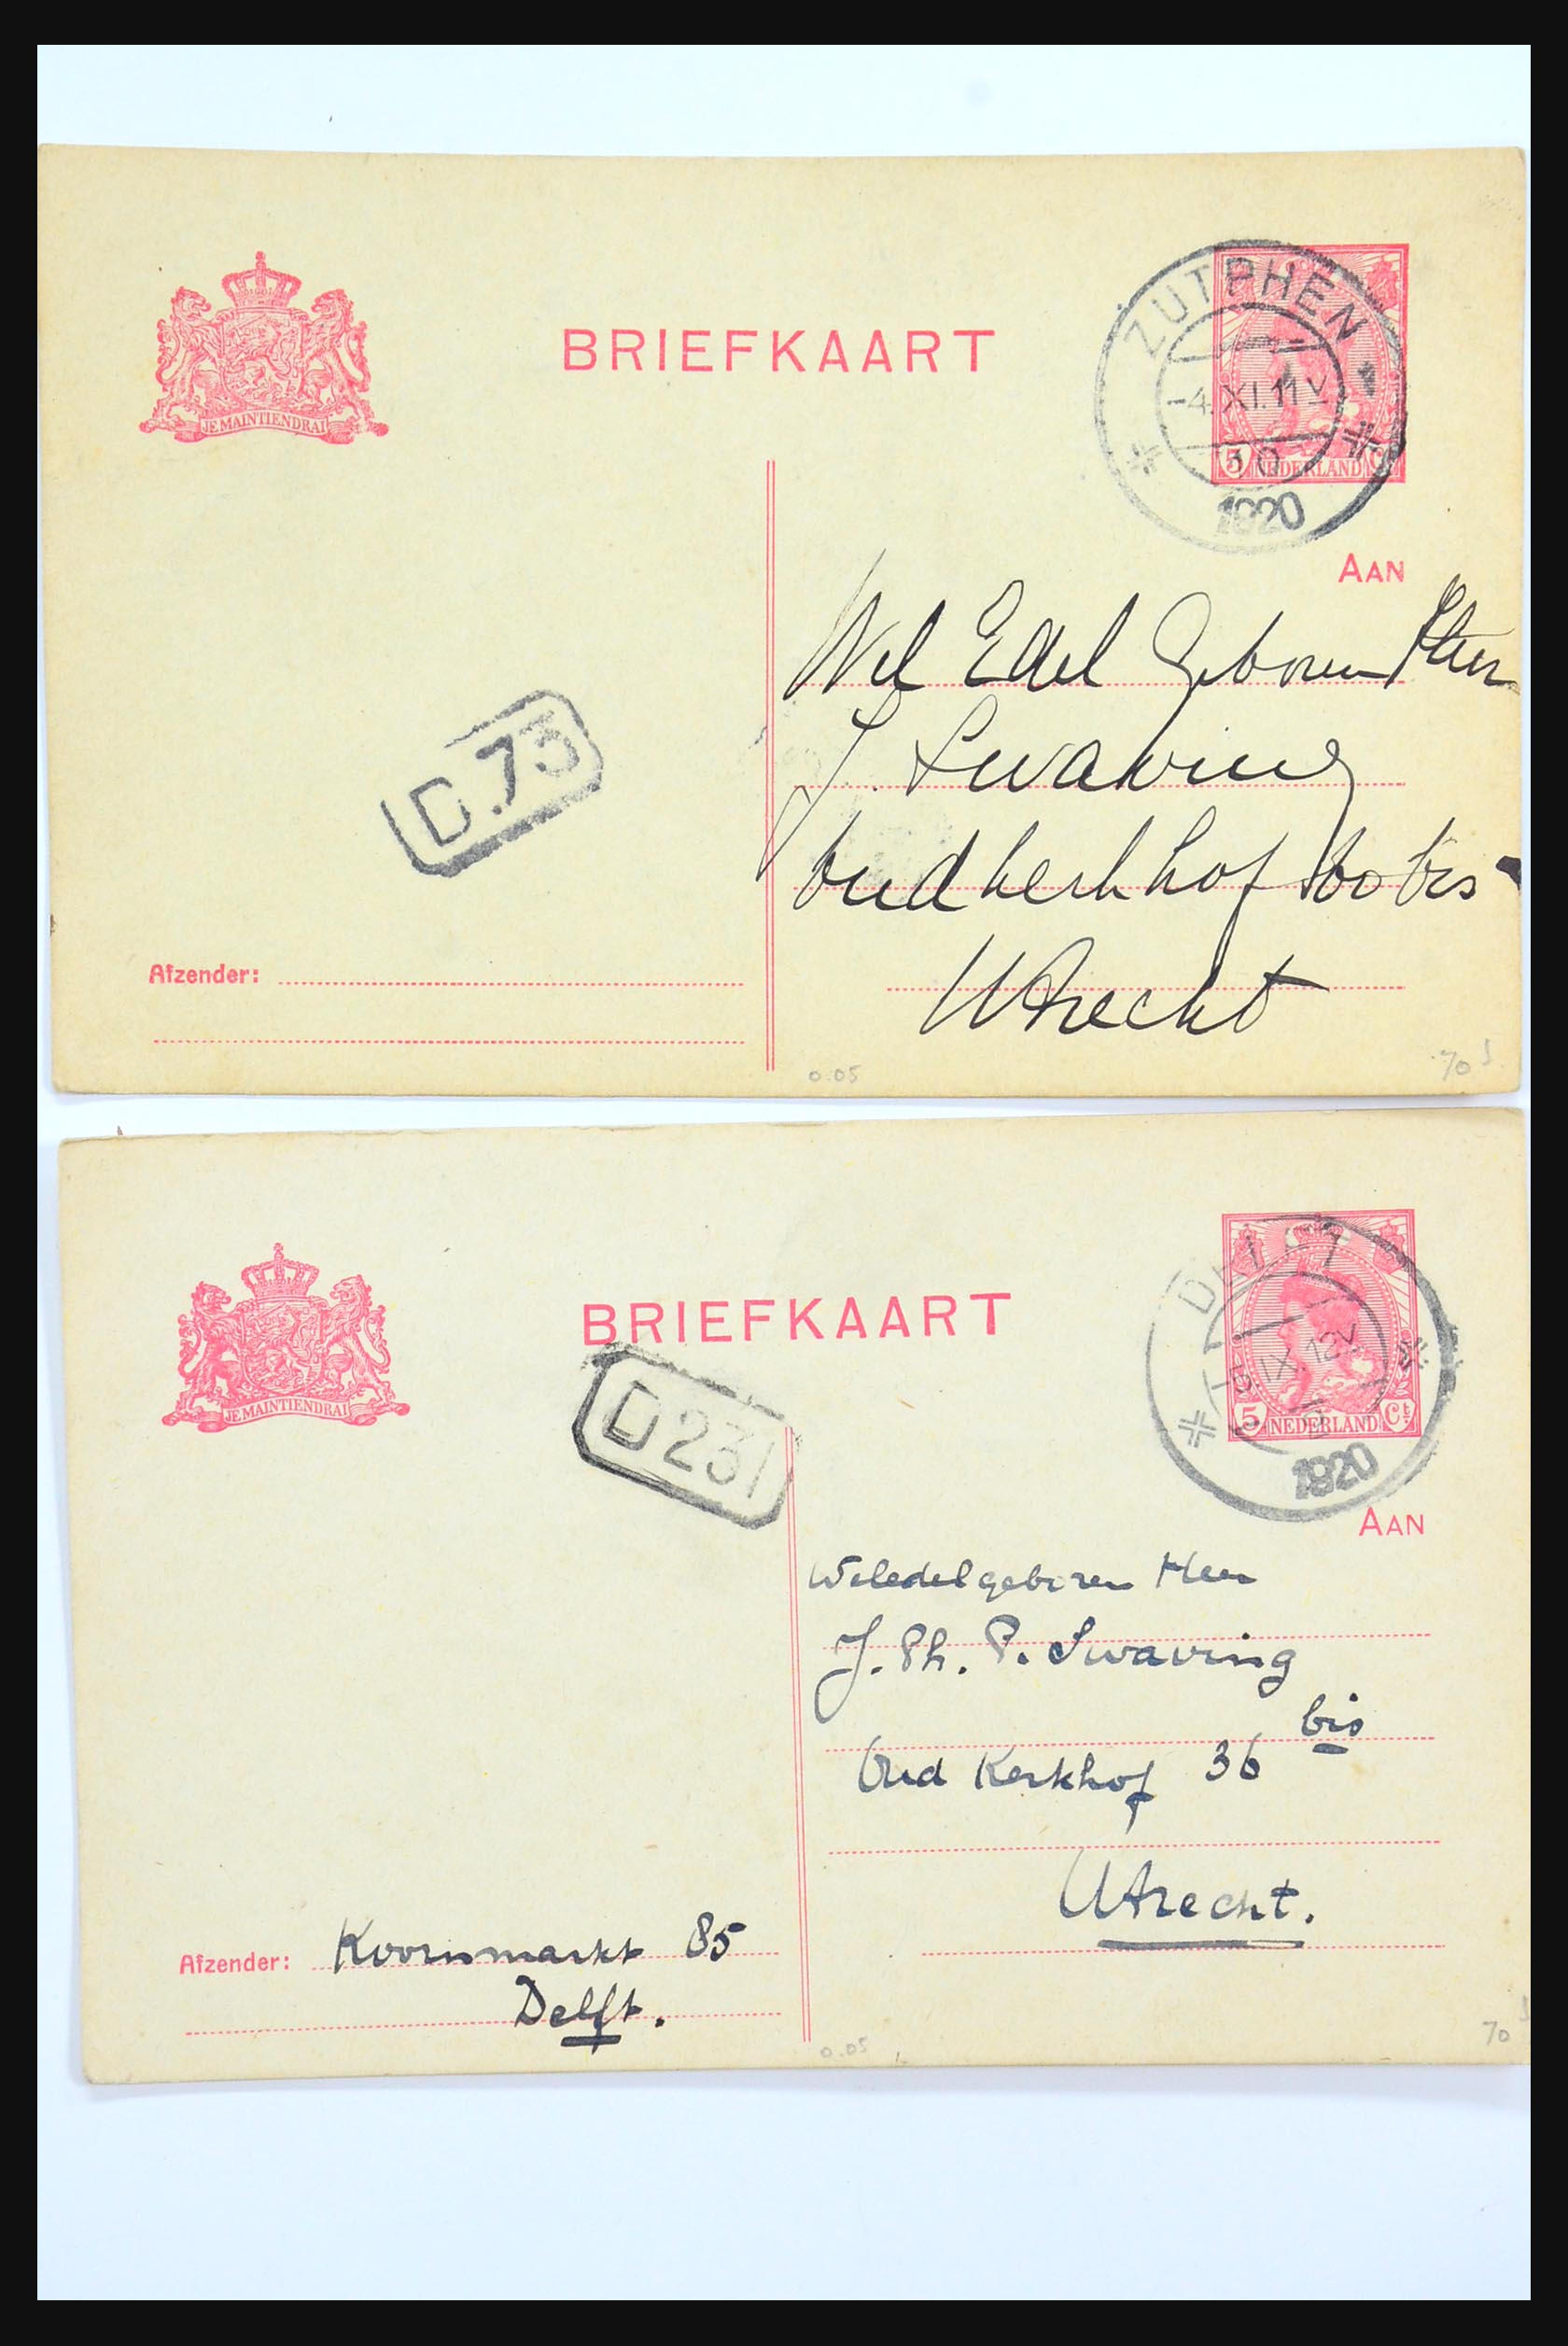 BRIEFKAART
JE MAINTIENDRAI
ZUTPHEN
1
-4.XI.11V
10
1920
5 NEDERLAND Ct
AAN
Wel Edel Geboren Heer
J. Swaving
Oudkerkhof bis
Utrecht
D.73
Afzender:
0.05
70
BRIEFKAART
JE MAINTIENDRAI
DELFT
IX 12V
1920
5 NEDERLAND Ct
AAN
D 23
Weledelgeboren Heer
J. Ph. P. Swaving
Oud Kerkhof 36 bis
Utrecht.
Afzender: Koornmarkt 85
Delft.
0.05
70